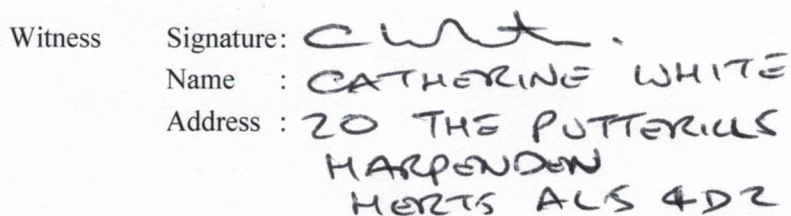 Witness Signature: C White.
Name : CATHERINE WHITE
Address : 20 THE PUTTERILLS
HARPENDEN
HERTS AL5 4DZ